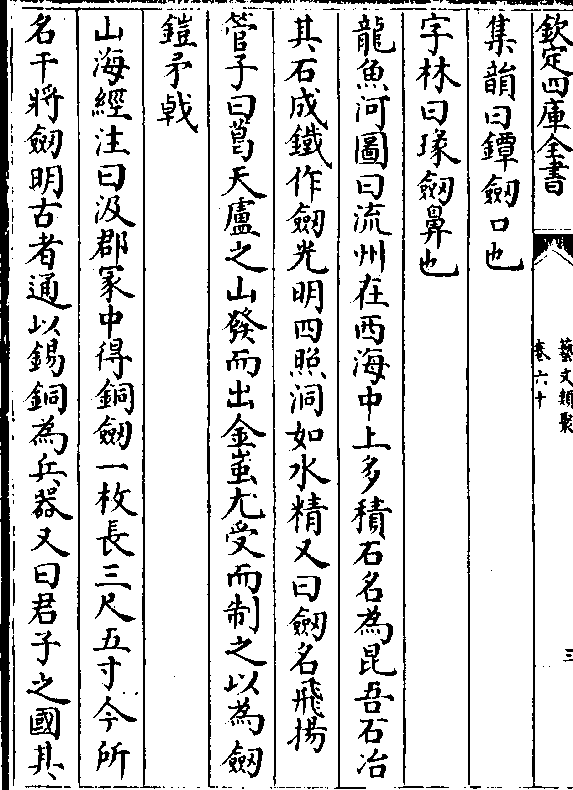 欽定四庫全書
藝文類聚
卷六十
三
集韻曰鐔劒口也
字林曰璏劒鼻也
龍魚河圖曰流州在西海中上多積石名為昆吾石冶
其石成鐵作劒光明四照洞如水精又曰劒名飛揚
管子曰葛天廬之山發而出金蚩尤受而制之以為劒
鎧矛戟
山海經注曰汲郡冢中得銅劒一枚長三尺五寸今所
名干將劒明古者通以錫銅為兵器又曰君子之國其